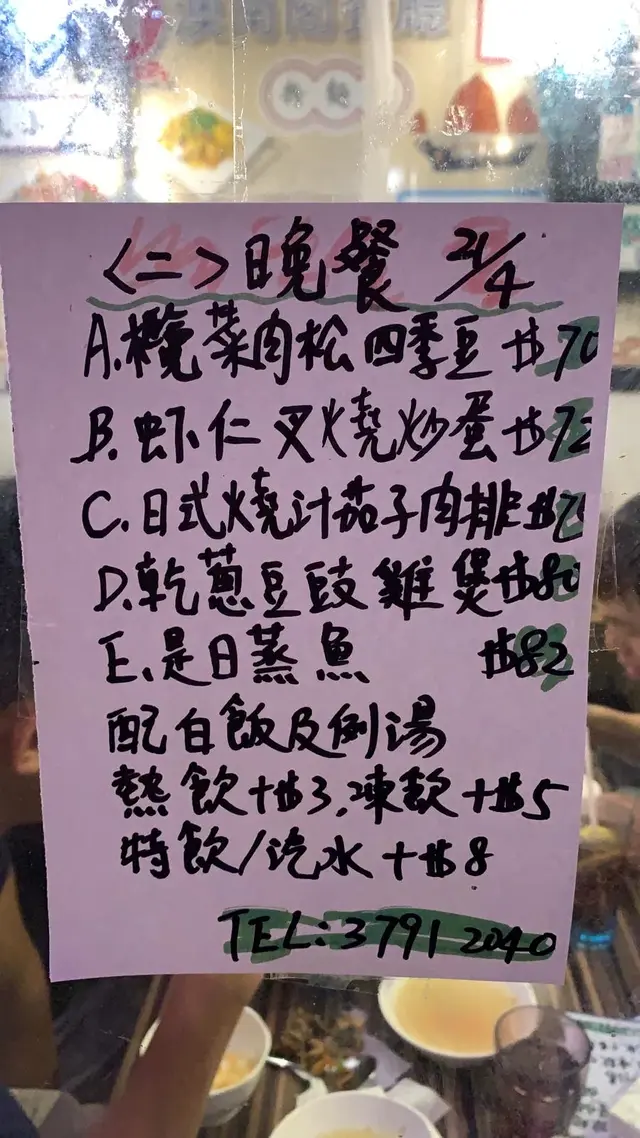 〈二〉日晚餐 21/4
A.欖菜肉松四季豆 $70
B.虾仁叉燒炒蛋 $72
C.日式燒汁茄子肉排
D.乾蔥豆豉雞煲 $80
E.是日蒸魚 $82
配白飯及例湯
熱飲+$3,凍飲+$5
特飲/汽水+$8
TEL:3791 2040